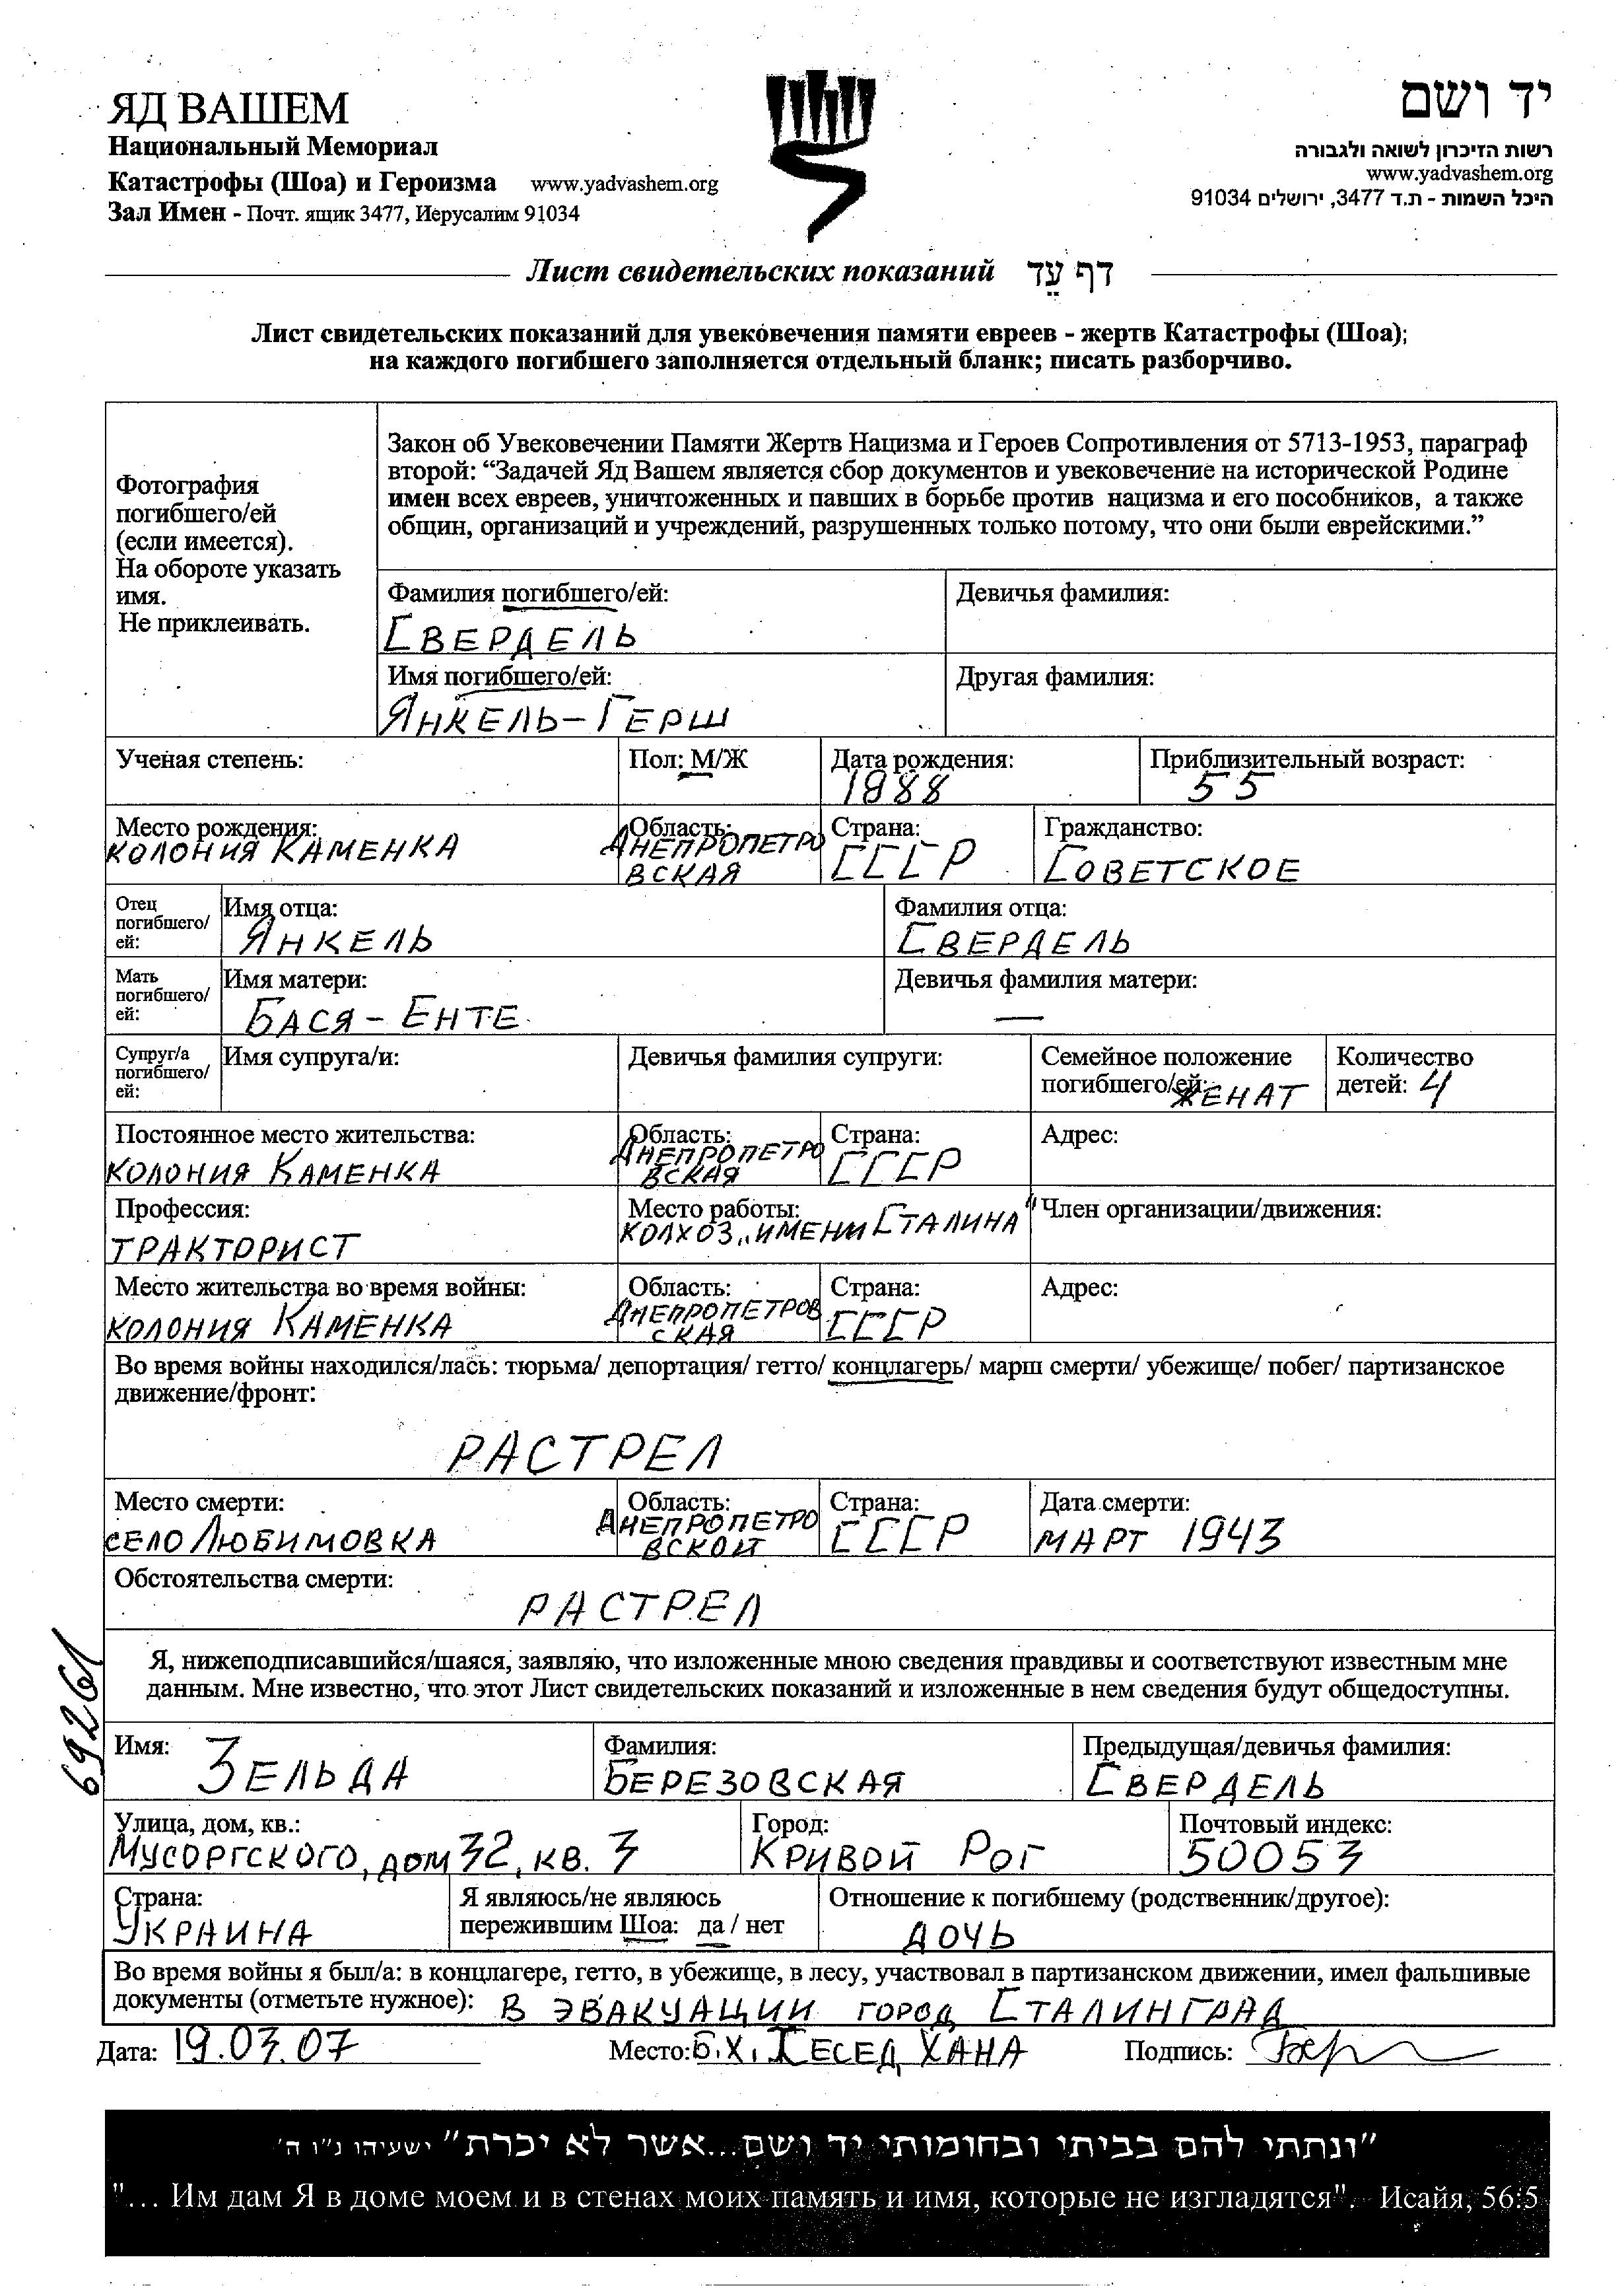 ЯД ВАШЕМ
Национальный Мемориал
Катастрофы (Шоа) и Героизма www.yadvashem.org
Зал Имен - Почт. ящик 3477, Иерусалим 91034
יד ושם
רשות הזיכרון לשואה ולגבורה
www.yadvashem.org
היכל השמות - ת.ד 3477, ירושלים 91034
Лист свидетельских показаний דף עֵד
Лист свидетельских показаний для увековечения памяти евреев - жертв Катастрофы (Шоа);
на каждого погибшего заполняется отдельный бланк; писать разборчиво.
Фотография
погибшего/ей
(если имеется).
На обороте указать
имя.
Не приклеивать.
Закон об Увековечении Памяти Жертв Нацизма и Героев Сопротивления от 5713-1953, параграф
второй: “Задачей Яд Вашем является сбор документов и увековечение на исторической Родине
имен всех евреев, уничтоженных и павших в борьбе против нацизма и его пособников, а также
общин, организаций и учреждений, разрушенных только потому, что они были еврейскими.”
Фамилия погибшего/ей: Девичья фамилия:
СВЕРДЕЛЬ
Имя погибшего/ей: Другая фамилия:
ЯНКЕЛЬ-ГЕРШ
Ученая степень: Пол: М/Ж Дата рождения: Приблизительный возраст:
1988 55
Место рождения: Область: Страна: Гражданство:
КОЛОНИЯ КАМЕНКА ДНЕПРОПЕТРО СССР СОВЕТСКОЕ
ВСКАЯ
Отец
погибшего/
ей:
Имя отца: Фамилия отца:
ЯНКЕЛЬ СВЕРДЕЛЬ
Мать
погибшего/
ей:
Имя матери: Девичья фамилия матери:
БАСЯ - ЕНТЕ —
Супруг/а
погибшего/
ей:
Имя супруга/и: Девичья фамилия супруги: Семейное положение Количество
погибшего/ей: ЖЕНАТ детей: 4
Постоянное место жительства: Область: Страна: Адрес:
КОЛОНИЯ КАМЕНКА ДНЕПРОПЕТРО СССР
ВСКАЯ
Профессия: Место работы: Член организации/движения:
ТРАКТОРИСТ КОЛХОЗ „ИМЕНИ СТАЛИНА"
Место жительства во время войны: Область: Страна: Адрес:
КОЛОНИЯ КАМЕНКА ДНЕПРОПЕТРОВ СССР
СКАЯ
Во время войны находился/лась: тюрьма/ депортация/ гетто/ концлагерь/ марш смерти/ убежище/ побег/ партизанское
движение/фронт:
РАСТРЕЛ
Место смерти: Область: Страна: Дата смерти:
СЕЛО ЛЮБИМОВКА ДНЕПРОПЕТРО СССР МАРТ 1943
ВСКОЙ
Обстоятельства смерти:
РАСТРЕЛ
69261
Я, нижеподписавшийся/шаяся, заявляю, что изложенные мною сведения правдивы и соответствуют известным мне
данным. Мне известно, что этот Лист свидетельских показаний и изложенные в нем сведения будут общедоступны.
Имя: Фамилия: Предыдущая/девичья фамилия:
ЗЕЛЬДА БЕРЕЗОВСКАЯ СВЕРДЕЛЬ
Улица, дом, кв.: Город: Почтовый индекс:
МУСОРГСКОГО, ДОМ 32, КВ. 3 КРИВОЙ РОГ 50053
Страна: Я являюсь/не являюсь Отношение к погибшему (родственник/другое):
УКРАИНА пережившим Шоа: да / нет ДОЧЬ
Во время войны я был/а: в концлагере, гетто, в убежище, в лесу, участвовал в партизанском движении, имел фальшивые
документы (отметьте нужное): В ЭВАКУАЦИИ ГОРОД СТАЛИНГРАД
Дата: 19.03.07 Место: Б.Х. ХЕСЕД ХАНА Подпись:
"ונתתי להם בביתי ובחומותי יד ושם...אשר לא יכרת" ישעיהו נ"ו ה'
"... Им дам Я в доме моем и в стенах моих память и имя, которые не изгладятся". Исайя, 56:5